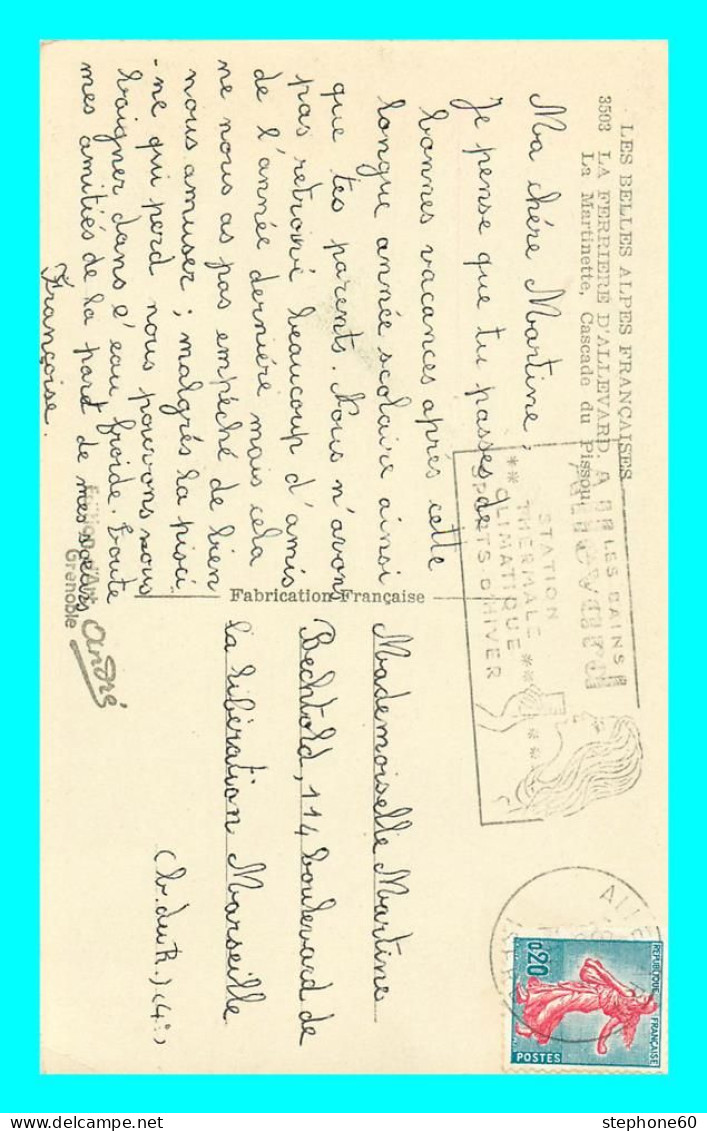 LES BELLES ALPES FRANÇAISES
3503 LA FERRIERE D'ALLEVARD. A
La Martinette, Cascade du Pissou
Ma chère Martine,
Je pense que tu passes de
bonnes vacances après cette
longue année scolaire ainsi
que tes parents. Nous n'avons
pas retrouvé beaucoup d'amis
de l'année dernière mais cela
ne nous as pas empéché de bien
nous amuser ; malgrés la pisci-
-ne qui perd nous pouvons nous
baigner dans l'eau froide. Toute
mes amitiés de la part de mes sœurs
Françoise.
Edition d'Art
André
Grenoble
Fabrication Française
LES BAINS
Allevard
STATION
THERMALE
CLIMATIQUE
SPORTS D'HIVER
ALLE
REPUBLIQUE FRANÇAISE
0,20
POSTES
Mademoiselle Martine
Bechtold, 114 boulevard de
la libération Marseille
(b.du R.) (4°)
stephone60